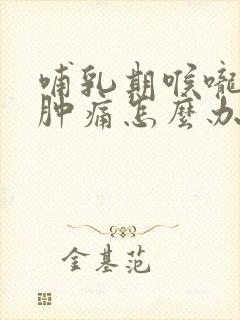 哺乳期喉嚨
肿痛怎麼办
金基范